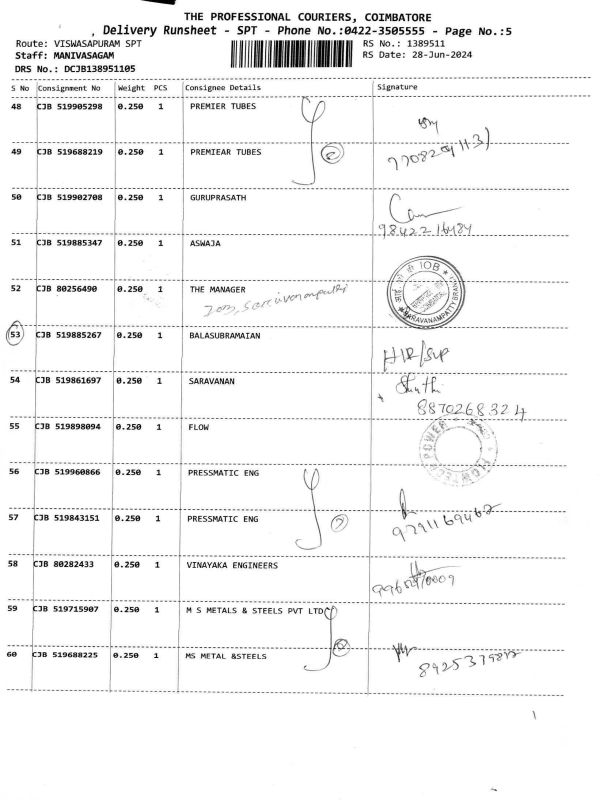 THE PROFESSIONAL COURIERS, COIMBATORE
Delivery Runsheet - SPT - Phone No.:0422-3505555 - Page No.:5
Route: VISWASAPURAM SPT RS No.: 1389511
Staff: MANIVASAGAM RS Date: 28-Jun-2024
DRS No.: DCJB138951105
S No Consignment No Weight PCS Consignee Details Signature
48 CJB 519905298 0.250 1 PREMIER TUBES
49 CJB 519688219 0.250 1 PREMIEAR TUBES
50 CJB 519902708 0.250 1 GURUPRASATH
9842216484
51 CJB 519885347 0.250 1 ASWAJA
IOB
SARAVANAMPATTY BRANCH
52 CJB 80256490 0.250 1 THE MANAGER
53 CJB 519885267 0.250 1 BALASUBRAMAIAN
HIR/SVP
54 CJB 519861697 0.250 1 SARAVANAN
8870268324
55 CJB 519898094 0.250 1 FLOW
FLOWTECH POWER
56 CJB 519960866 0.250 1 PRESSMATIC ENG
57 CJB 519843151 0.250 1 PRESSMATIC ENG
9791169462
58 CJB 80282433 0.250 1 VINAYAKA ENGINEERS
59 CJB 519715907 0.250 1 M S METALS & STEELS PVT LTD
60 CJB 519688225 0.250 1 MS METAL &STEELS
1